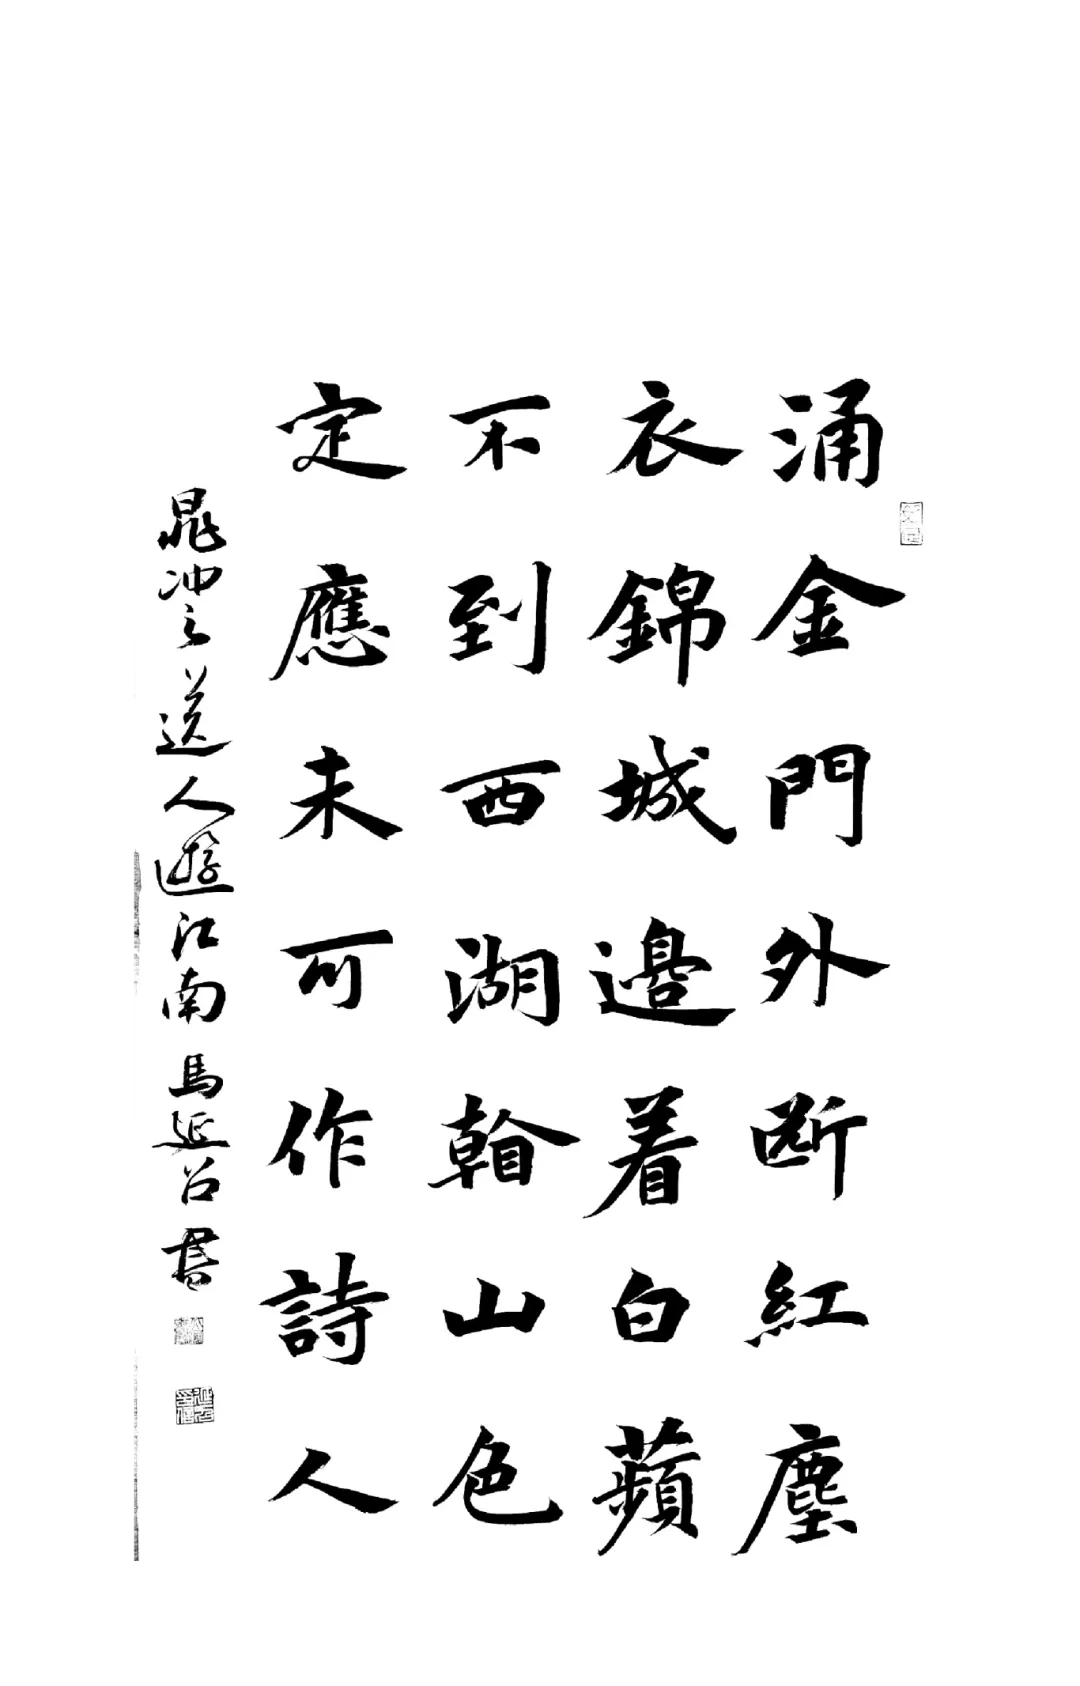 涌金門外断紅塵
衣錦城邉着白蘋
不到西湖看山色
定應未可作詩人
晁冲之送人遊江南 馬延召書